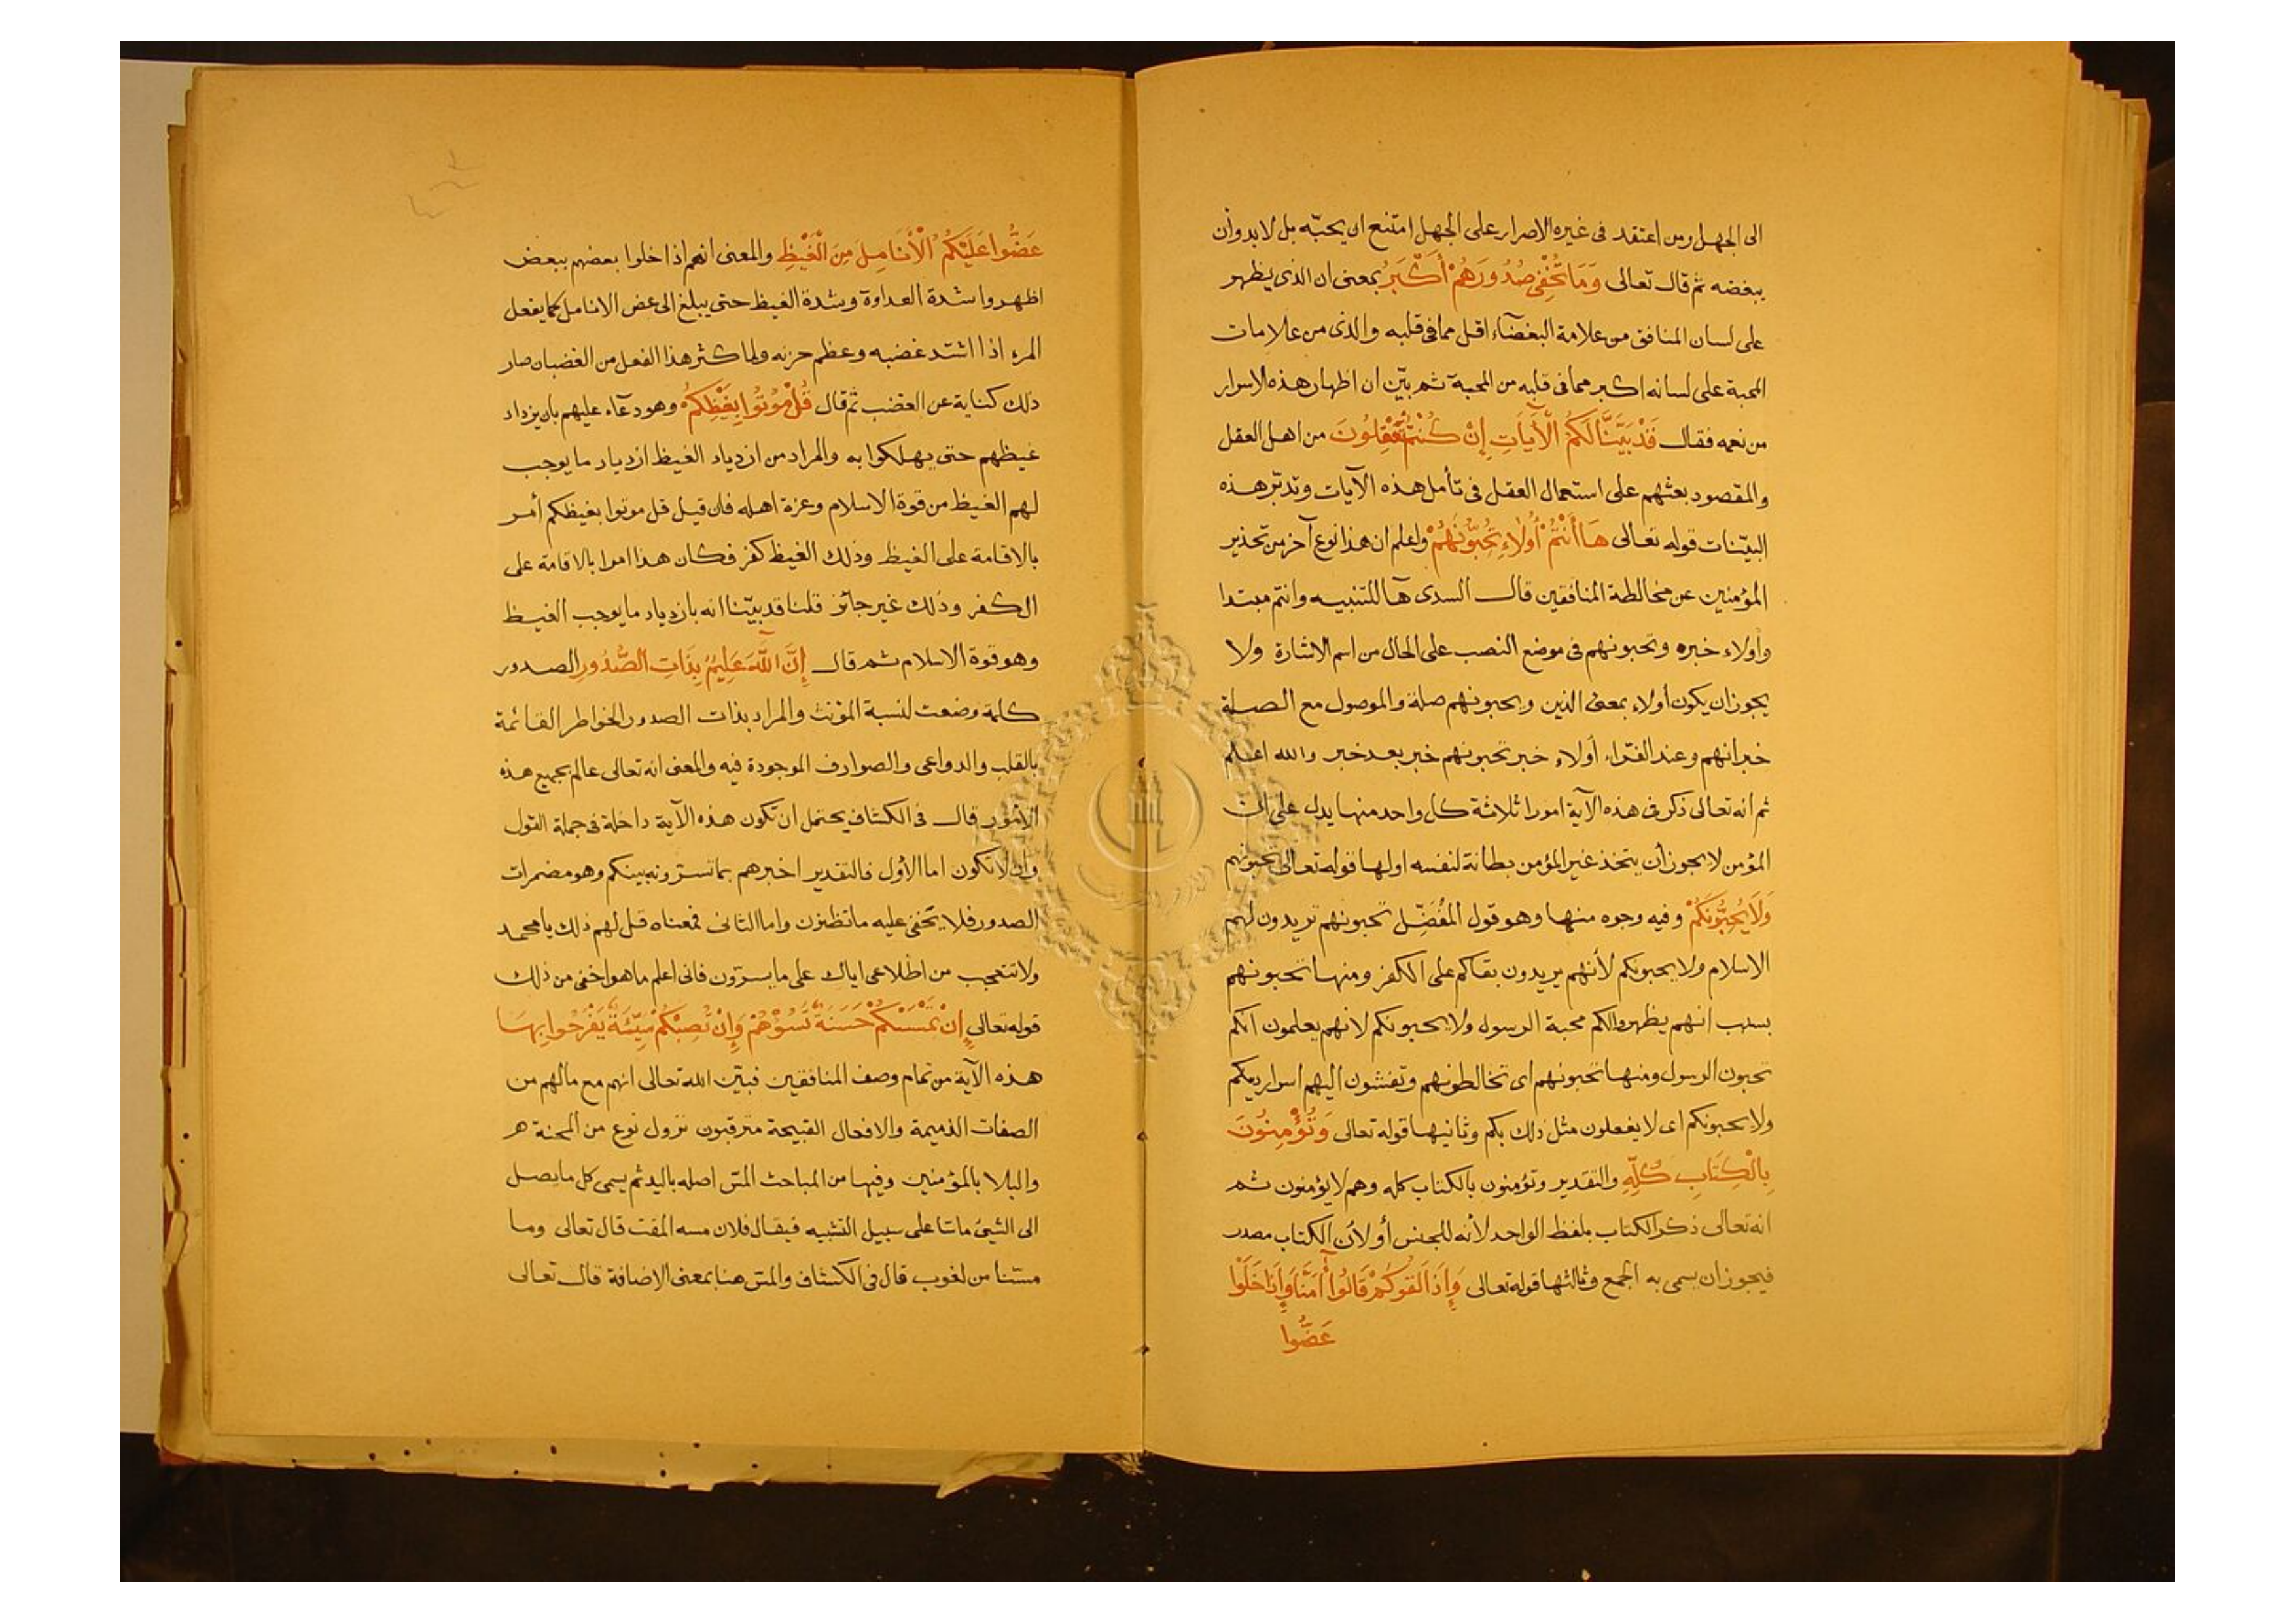 الى الجهل ومن اعتقد فى غيره الاصرار على الجهل امتنع ان يحبّه بل لابد وأن
يبغضه ثم قال تعالى وَمَا تُخْفِى صُدُورُهُمْ أَكْبَرُ بمعنى ان الذى يظهر
على لسان المنافق من علامة البغضآء اقل مما فى قلبه والذى من علامات
المحبة على لسانه اكبر مما فى قلبه من المحبة ثم بيّن ان اظهار هذه الاسرار
من نعمه فقال قَدْ بَيَّنَّا لَكُمُ الْآيَاتِ إِنْ كُنْتُمْ تَعْقِلُونَ من اهل العقل
والمقصود بعثهم على استعمال العقل فى تأمل هذه الآيات وتدبّر هذه
البيّنات قوله تعالى هَا أَنْتُمْ أُولَاءِ تُحِبُّونَهُمْ واعلم ان هذا نوع آخر من تحذير
المؤمنين عن مخالطة المنافقين قال السدى هآ للتنبيه وانتم مبتدا
وأولاء خبره وتحبونهم فى موضع النصب على الحال من اسم الاشارة ولا
يجوز ان يكون أولاء بمعنى الذين وتحبونهم صلة والموصول مع الصلة
خبر انهم وعند الفرّاء أولاء خبر تحبونهم خبر بعد خبر والله اعلم
ثم انه تعالى ذكر فى هذه الآية امورا ثلاثة كل واحد منها يدل على ان
المؤمن لا يجوز أن يتخذ غير المؤمن بطانة لنفسه اولها قوله تعالى تحبونهم
وَلَا يُحِبُّونَكُمْ وفيه وجوه منها وهو قول المُفَضّل تحبونهم تريدون لهم
الاسلام ولا يحبونكم لأنهم يريدون بقاكم على الكفر ومنها تحبونهم
بسبب انهم يظهروا لكم محبة الرسول ولا يحبونكم لانهم يعلمون انكم
تحبون الرسول ومنها تحبونهم اى تخالطونهم وتفشون اليهم اسراربكم
ولا يحبونكم اى لا يفعلون مثل ذلك بكم وثانيها قوله تعالى وَتُؤْمِنُونَ
بِالْكِتَابِ كُلِّهِ والتقدير وتؤمنون بالكتاب كله وهم لا يؤمنون ثم
انه تعالى ذكر الكتاب بلفظ الواحد لأنه للجنس أو لأن الكتاب مصدر
فيجوز ان يسمى به الجمع وثالثها قوله تعالى وَإِذَا لَقُوكُمْ قَالُوا أٰمَنَّا وَإِذَا خَلَوْا
عَضُّوا
عَضُّوا عَلَيْكُمُ الْأَنَامِلَ مِنَ الْغَيْظِ والمعنى انهم اذا خلوا بعضهم ببعض
اظهروا شدة العداوة وشدة الغيظ حتى يبلغ الى عض الانامل كما يفعل
المرء اذا اشتد غضبه وعظم حزنه ولما كثر هذا الفعل من الغضبان صار
ذلك كناية عن الغضب ثم قال قُلْ مُوتُوا بِغَيْظِكُمْ وهو دعآء عليهم بان يزداد
غيظهم حتى يهلكوا به والمراد من ازدياد الغيظ ازدياد ما يوجب
لهم الغيظ من قوة الاسلام وعزة اهله فان قيل قل موتوا بغيظكم أمر
بالاقامة على الغيظ وذلك الغيظ كفر فكان هذا امرا بالاقامة على
الكفر وذلك غير جائز قلنا قد بيّنا انه بازدياد ما يوجب الغيظ
وهو قوة الاسلام ثم قال إِنَّ اللَّهَ عَلِيمٌ بِذَاتِ الصُّدُورِ الصدور
كلمة وضعت لنسبة المؤنث والمراد بذات الصدور الخواطر القائمة
بالقلب والدواعى والصوارف الموجودة فيه والمعنى انه تعالى عالم بجميع هذه
الأمور قال فى الكشاف يحتمل ان تكون هذه الآية داخلة فى جملة القول
وان لا تكون اما الأول فالتقدير اخبرهم بما تسرّونه بينكم وهو مضمرات
الصدور فلا يخفى عليه ما تظنون واما الثانى فمعناه قل لهم ذلك يا محمد
ولا تتعجب من اطلاعى اياك على ما يسرّون فانى اعلم ما هو اخفى من ذلك
قوله تعالى إِنْ تَمْسَسْكُمْ حَسَنَةٌ تَسُؤْهُمْ وَإِنْ تُصِبْكُمْ سَيِّئَةٌ يَفْرَحُوا بِهَا
هذه الآية من تمام وصف المنافقين فبيّن الله تعالى انهم مع مالهم من
الصفات الذميمة والافعال القبيحة مترقبون نزول نوع من المحنة
والبلا بالمؤمنين وفيها من المباحث المسّ اصله باليد ثم يسمى كل ما يصل
الى الشىء ماسّا على سبيل التشبيه فيقال فلان مسه المقت قال تعالى وما
مسّنا من لغوب قال فى الكشاف والمسّ هنا بمعنى الاضافة قال تعالى